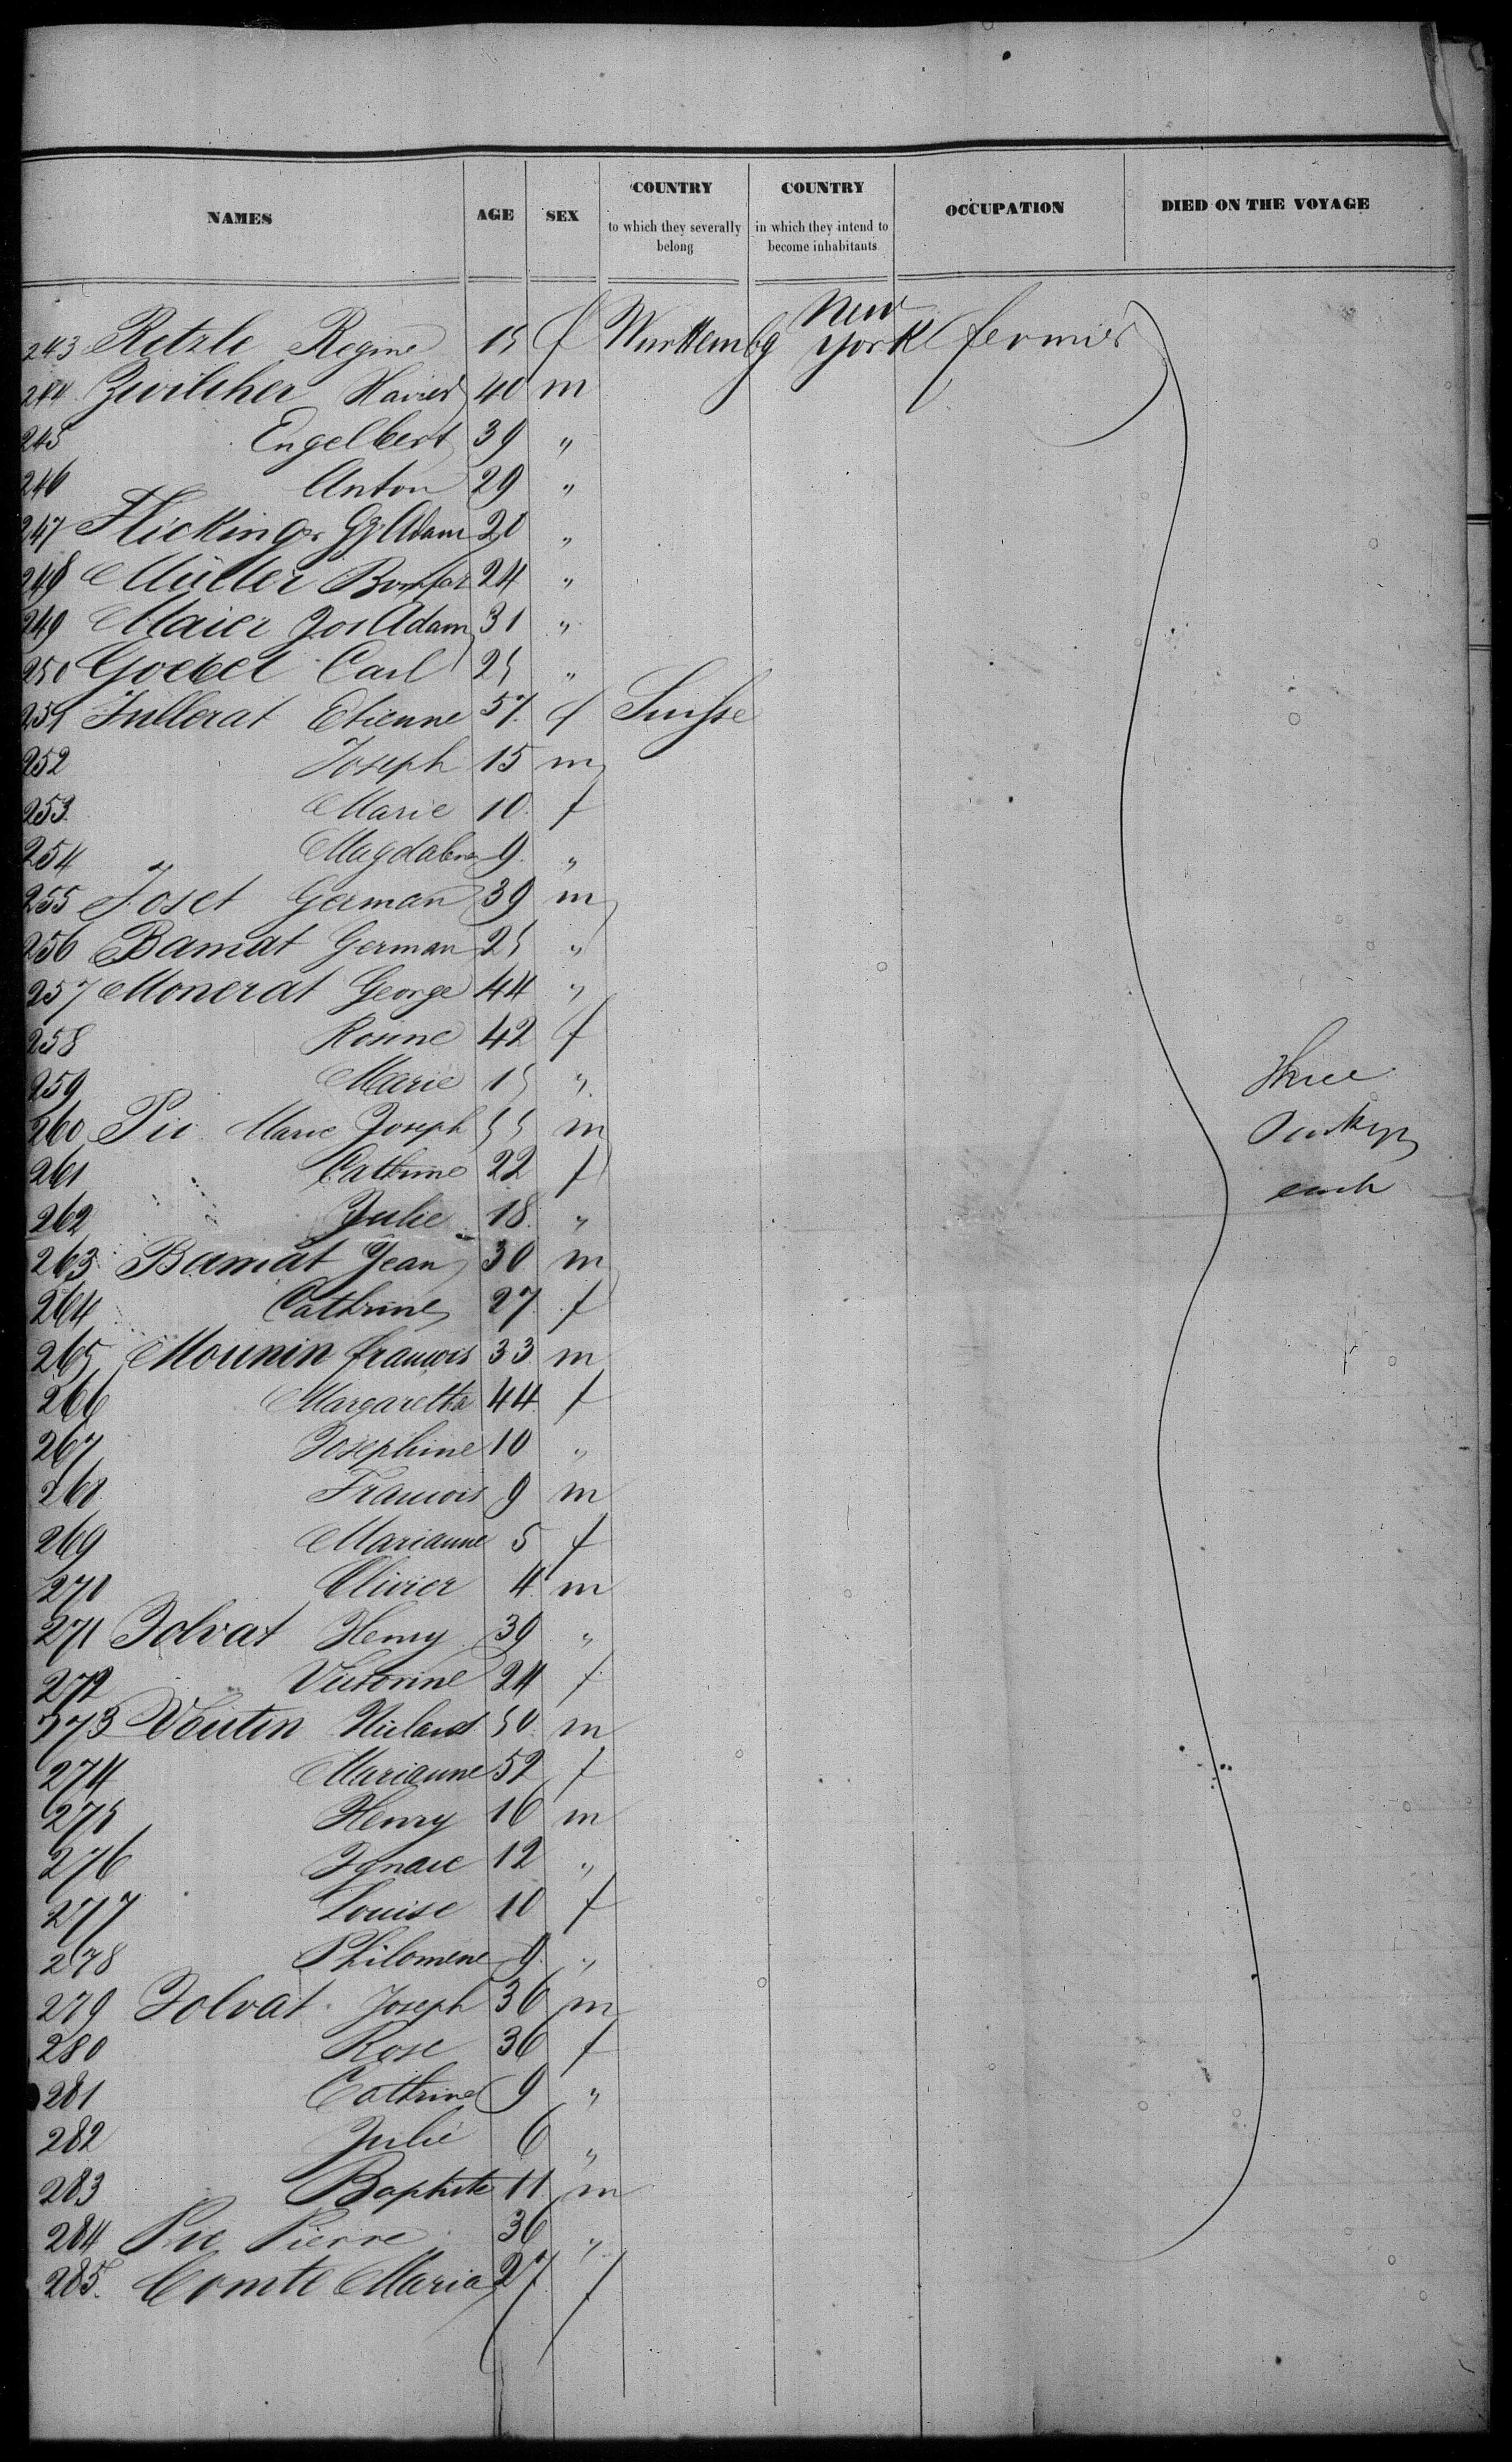 NAMES AGE SEX COUNTRY to which they severally belong COUNTRY in which they intend to become inhabitants OCCUPATION DIED ON THE VOYAGE
243 Retzle Regine 15 f Wurttembg New York fermier
244 Zwilcher Xavier 40 m
245 Engelbert 39 "
246 Anton 29 "
247 Flickinger Gg Adam 20 "
248 Müller 24 "
249 Maier Jos Adam 31 "
250 Goebel Carl 25 "
251 Fullerat Etienne 57 f Suisse
252 Joseph 15 m
253 Marie 10 f
254 Magdalena 9 "
255 Joset German 39 m
256 Bamat German 25 "
257 Monerat George 44 "
258 Rosine 42 f
259 Marie 15 "
260 Pic Marie Joseph 55 m
261 Cathrine 22 f
262 Julie 18 "
263 Bamat Jean 30 m
264 Cathrine 27 f
265 Mounin francois 33 m
266 Margaretha 44 f
267 Josephine 10 "
268 Francois 9 m
269 Marianne 5 f
270 Olivier 4 m
271 Jolvat Henry 39 "
272 Victorine 24 f
273 Voutin 50 m
274 Marianne 52 f
275 Henry 16 m
276 Ignace 12 "
277 Louise 10 f
278 Philomene 9 "
279 Jolvat Joseph 36 m
280 Rose 36 f
281 Cathrine 9 "
282 Julie 6 "
283 Baptiste 11 m
284 Pic Pierre 36 "
285. Comte Maria 27 f
three
each